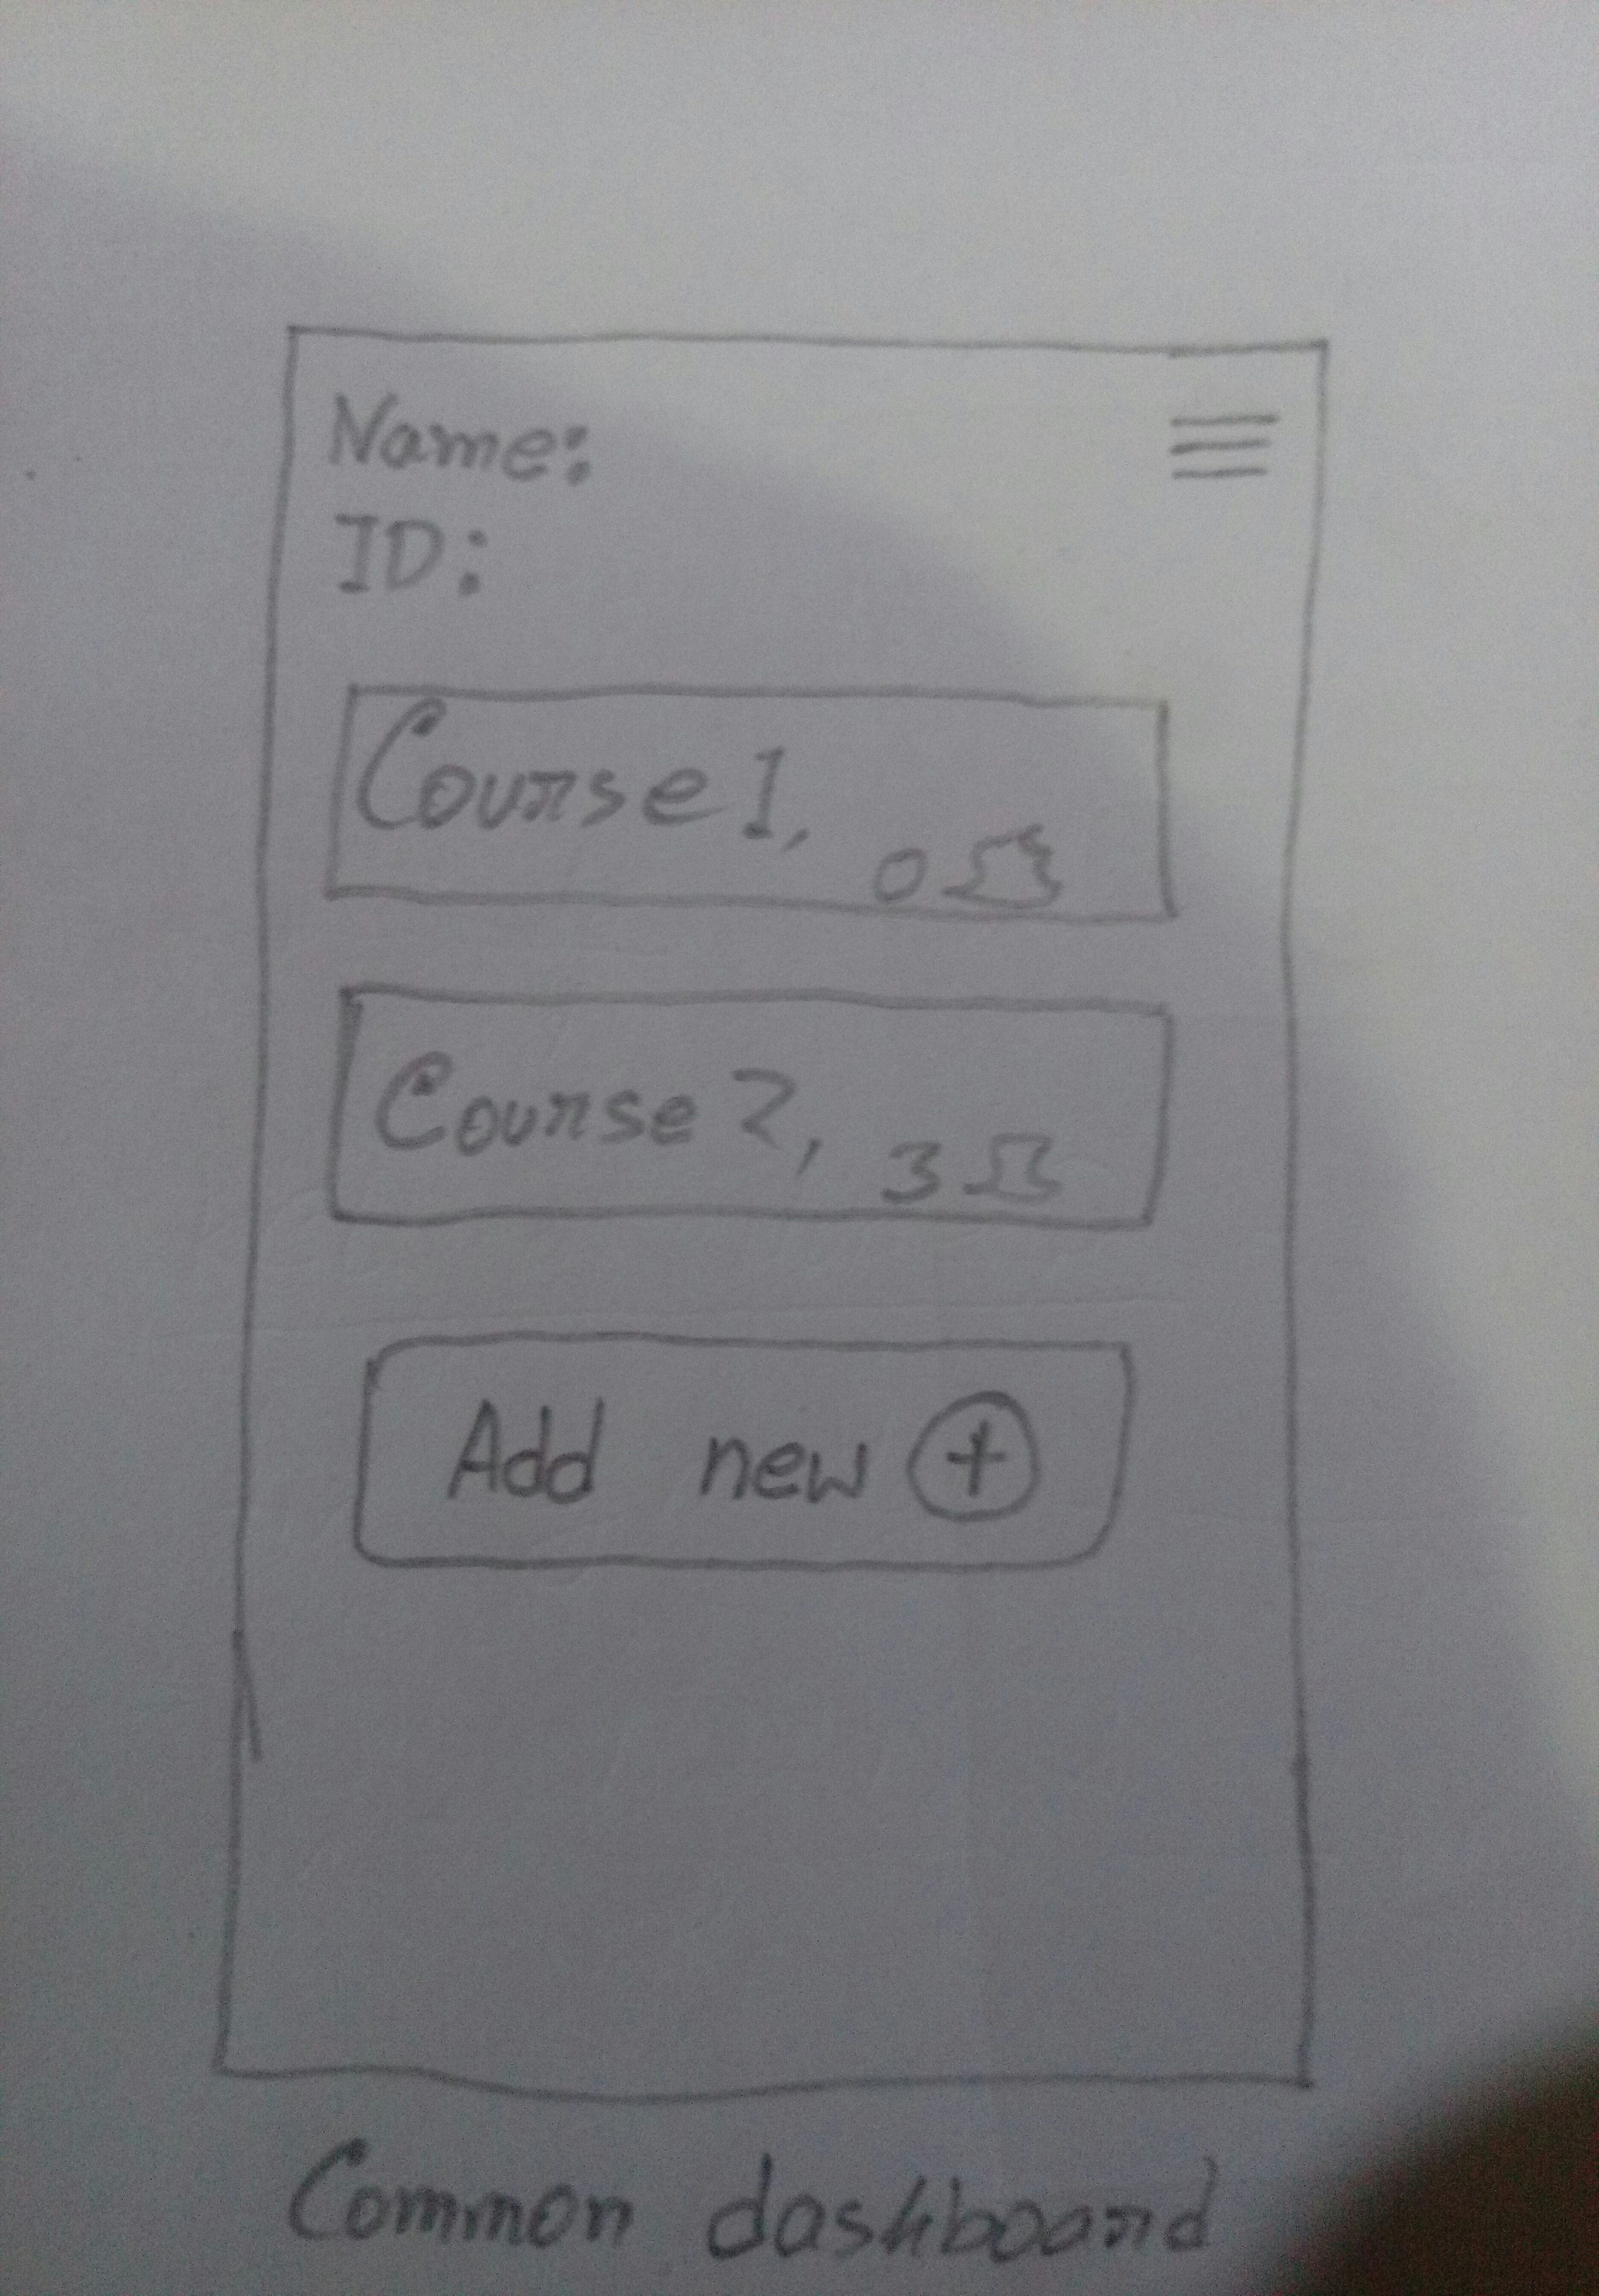 Name:
ID:
Course 1, 0
Course 2, 3
Add new +
Common dashboard